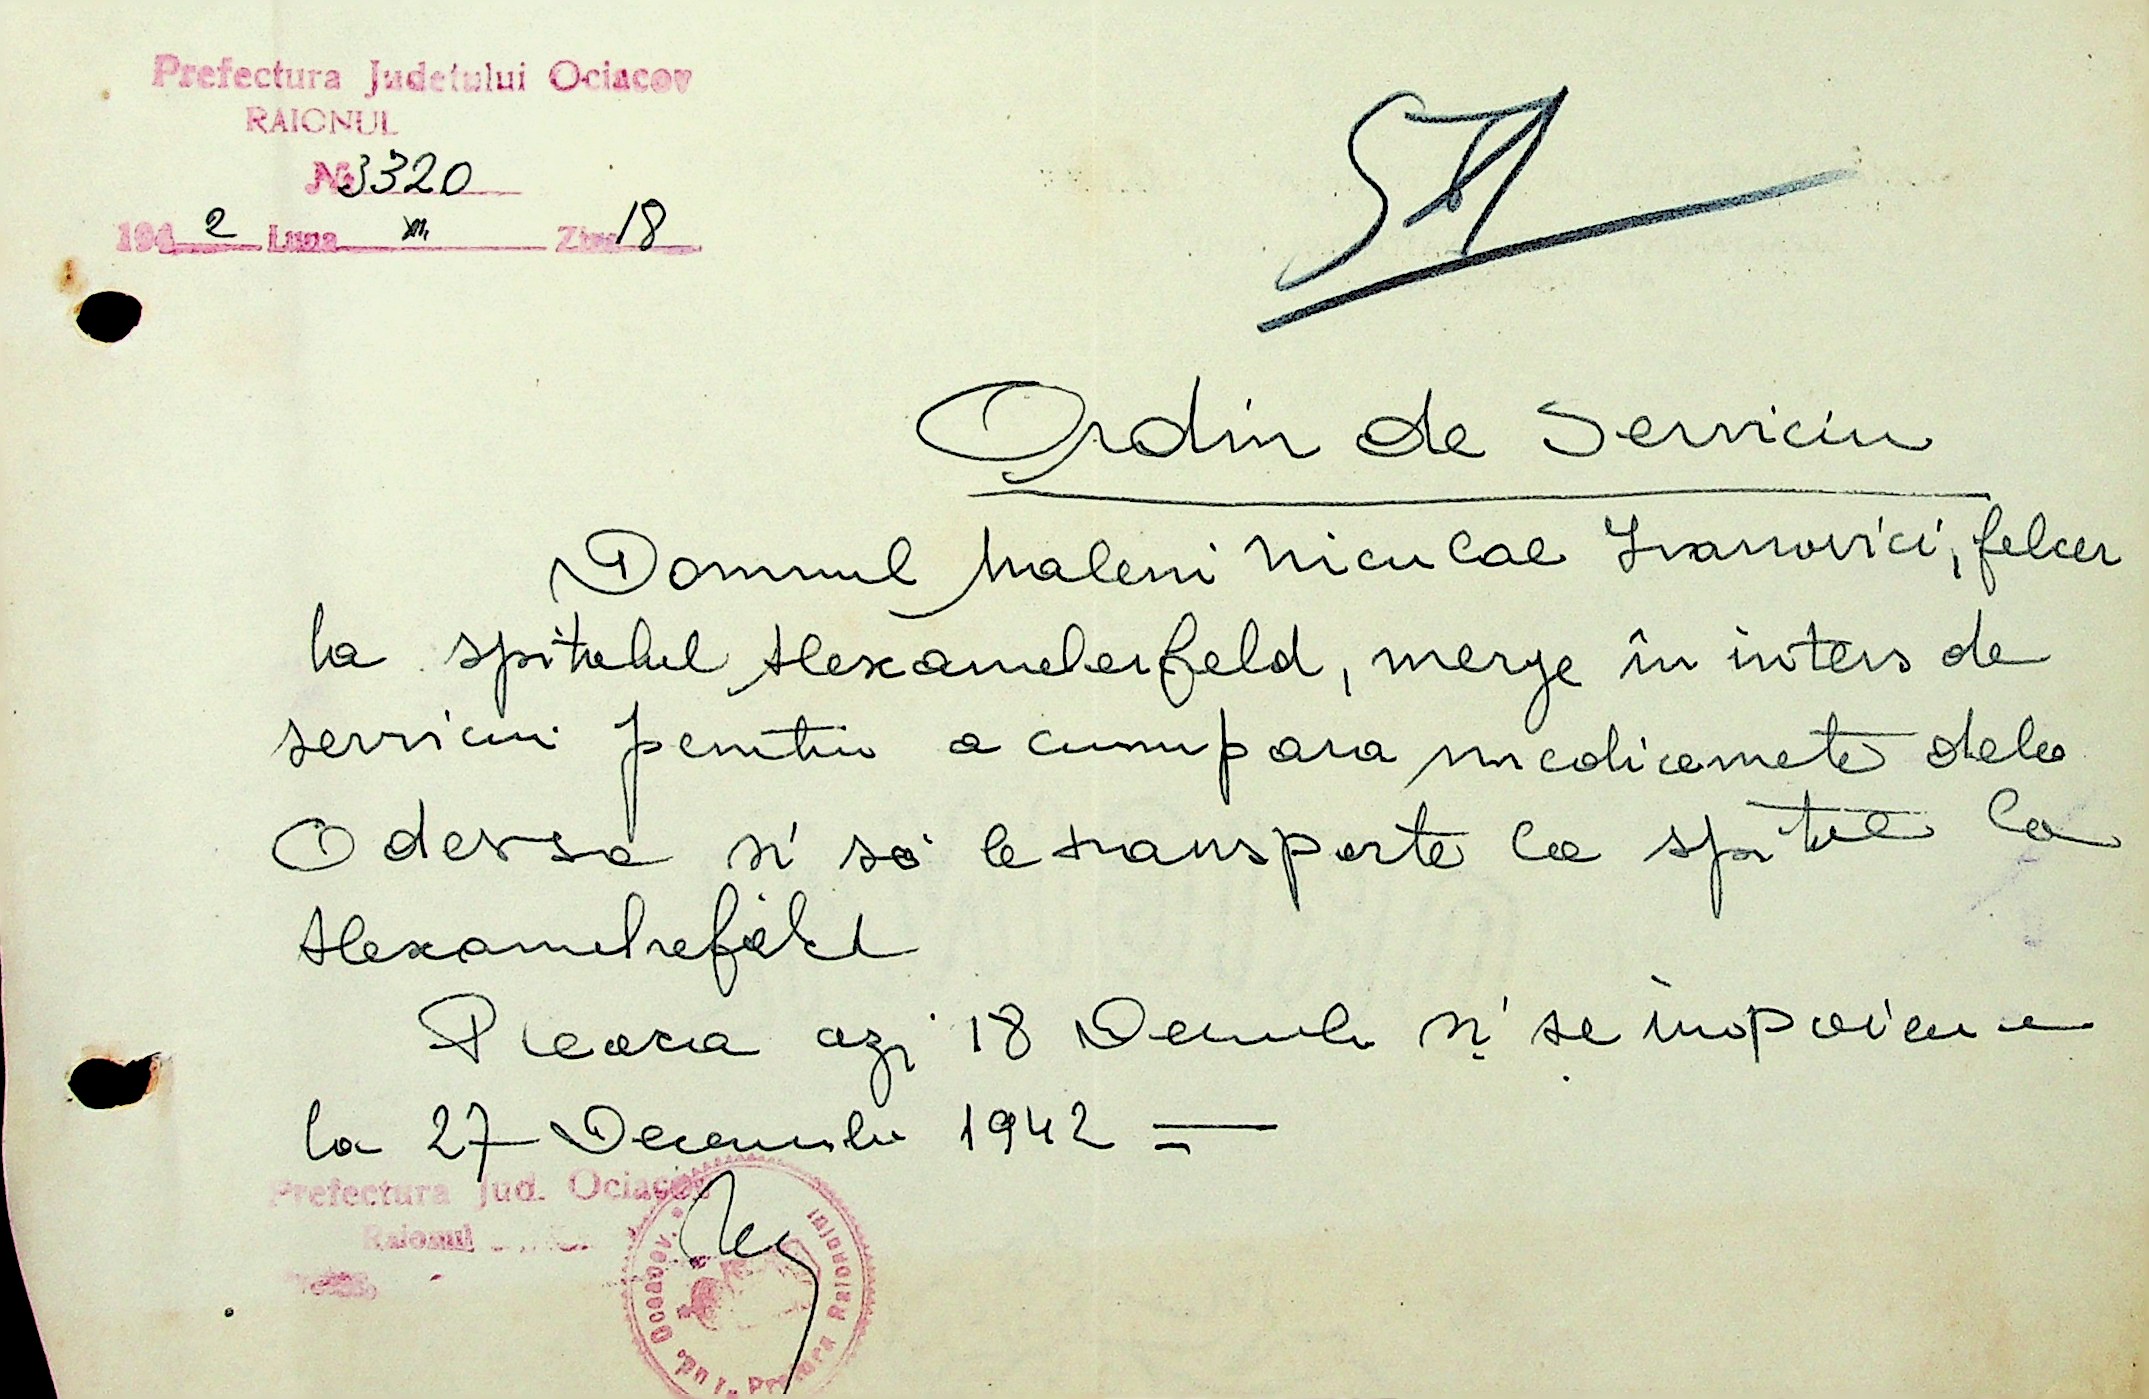 Prefectura Judetului Ociacov
RAIONUL
No 3320
1942 Luna XII Ziua 18
Ordin de Serviciu
Domnul Maleni Niculae Ivanovici, felcer
la spitalul Alexanderfeld, merge în inters de
serviciu pentru a cumpara medicamete dela
Odessa si să le transporte la spitul la
Alexandrefeld
Pleaca azi 18 Decemb si se inapoiem
la 27 Decembre 1942 =
Prefectura Jud. Ociacov
Raionul
Pretura Raionului Jud. Oceacov